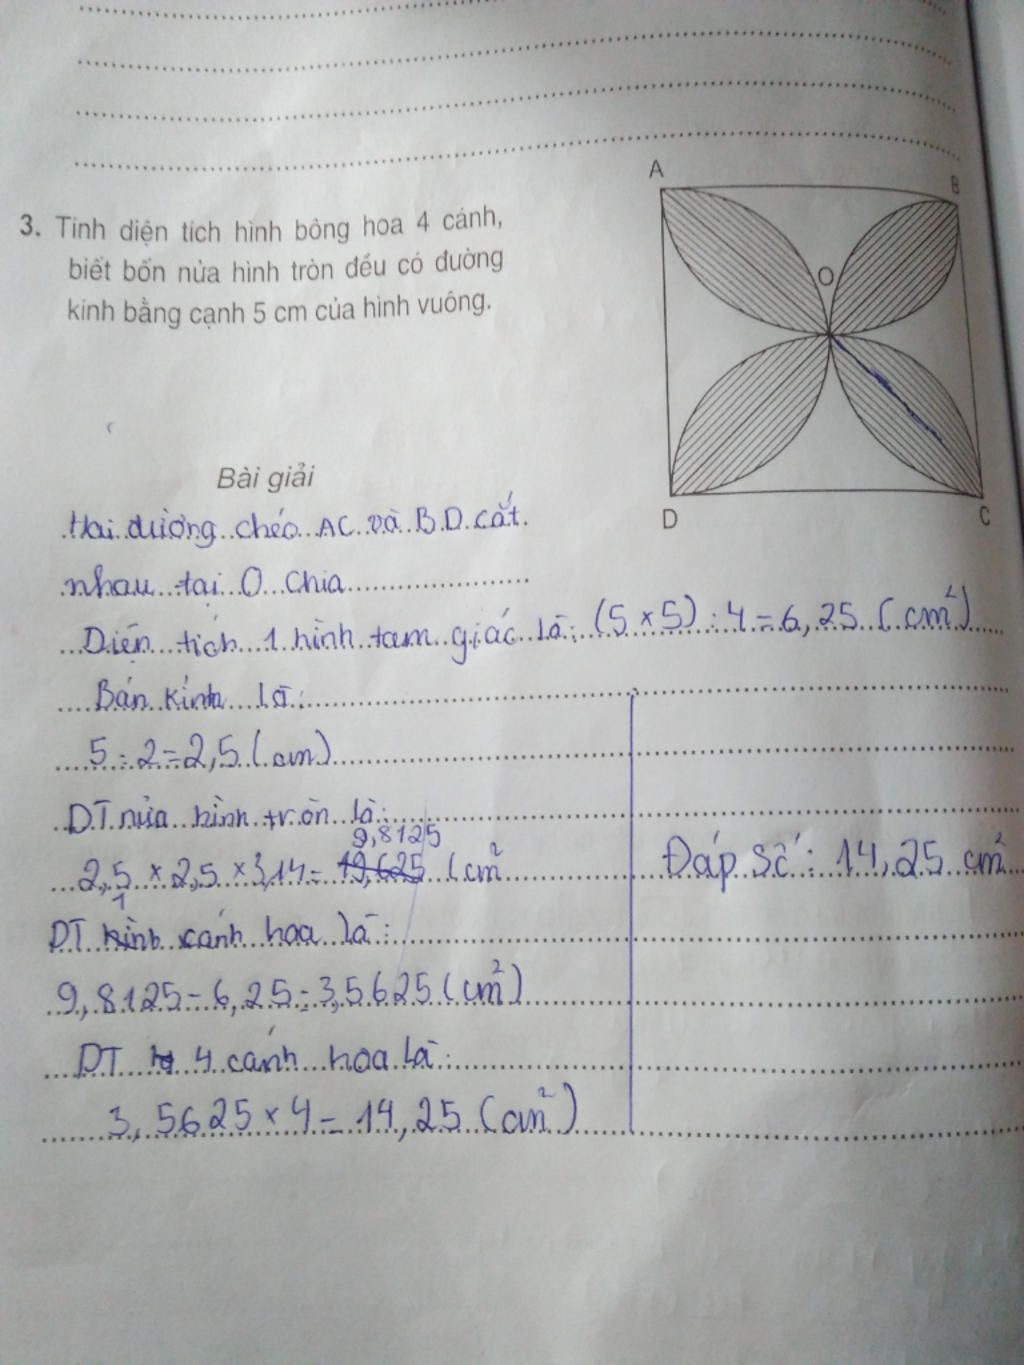 A
B
3. Tính diện tích hình bông hoa 4 cánh,
biết bốn nửa hình tròn đều có đường
kính bằng cạnh 5 cm của hình vuông.
O
D
C
Bài giải
Hai đường chéo AC và BD cắt
nhau tại O chia
Diện tích 1 hình tam giác là: (5 × 5) : 4 = 6,25 (cm²)
Bán kính là:
5 : 2 = 2,5 (cm)
DT nửa hình tròn là:
9,8125
2,5 × 2,5 × 3,14 = 19,625 (cm²
1
DT hình cánh hoa là:
9,8125 - 6,25 = 3,5625 (cm²)
DT 4 cánh hoa là:
3,5625 × 4 = 14,25 (cm²)
Đáp số: 14,25 cm²